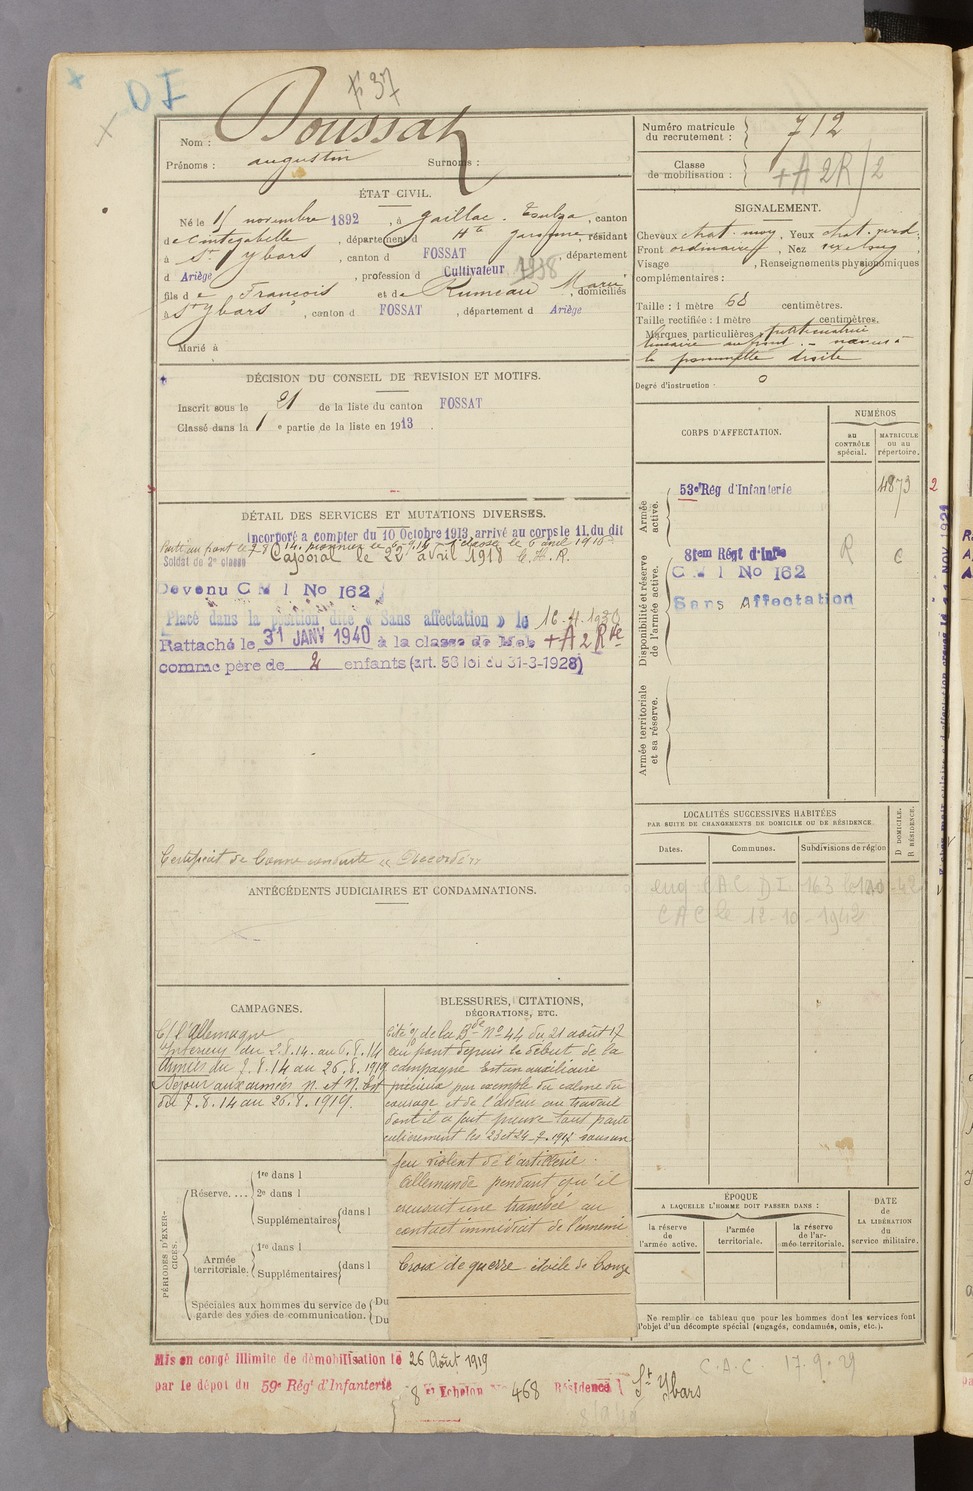 DI
F 37
Nom : Doussat
Prénoms : augustin Surnoms :
ÉTAT CIVIL.
Né le 15 novembre 1892, à Gaillac-Toulza, canton
de Cintegabelle, département d Hte Garonne, résidant
à St Ybars, canton d FOSSAT, département
d Ariège, profession d Cultivateur 1938
fils de François et de Rumeau Marie, domiciliés
à St Ybars, canton d FOSSAT, département d Ariège
Marié à
DÉCISION DU CONSEIL DE REVISION ET MOTIFS.
Inscrit sous le n° 21 de la liste du canton FOSSAT
Classé dans la 1e partie de la liste en 1913.
DÉTAIL DES SERVICES ET MUTATIONS DIVERSES.
Incorporé a compter du 10 Octobre 1913, arrivé au corps le 11, du dit
Soldat de 2e classe
Caporal le 22 avril 1918
Devenu C M I No 162
Placé dans la position dite « Sans affectation » le 16.4.1930
Rattaché le 31 JANV 1940 à la classe de Mob +A2Rte
comme père de 2 enfants (art. 58 loi du 31-3-1928)
Certificat de bonne conduite « Accordé »
ANTÉCÉDENTS JUDICIAIRES ET CONDAMNATIONS.
CAMPAGNES.
C/ l'Allemagne
Intérieur du 2.8.14. au 6.8.14
Armées du 7.8.14 au 26.8.1919
Séjour aux armées N. et N. Est
du 7.8.14 au 26.8.1919.
PÉRIODES D'EXERCICES.
Réserve....
1re dans l
2e dans l
Supplémentaires dans l
Armée territoriale.
1re dans l
Supplémentaires dans l
Spéciales aux hommes du service de garde des voies de communication.
Du
Du
BLESSURES, CITATIONS,
DÉCORATIONS, ETC.
Cité o/ de la Bde No 44 du 21 août 17
au front depuis le début de la
campagne Est un auxiliaire
précieux par exemple du calme du
courage et de l'ardeur au travail
dont il a fait preuve tout parti
culièrement les 23 et 24-7-1917 sous un
feu violent de l'artillerie
Allemande pendant qu'il
creusait une tranchée au
contact immédiat de l'ennemi
Croix de guerre étoile de bronze
Numéro matricule du recrutement : 712
Classe de mobilisation : +A2R/2
SIGNALEMENT.
Cheveux chat. moy, Yeux chat. foncé,
Front ordinaire, Nez
Visage , Renseignements physionomiques
complémentaires :
Taille : 1 mètre 68 centimètres.
Taille rectifiée : 1 mètre centimètres.
Marques particulières : petite cicatrice
linéaire au front. - naevus à
la pommette droite
Degré d'instruction : 0
CORPS D'AFFECTATION.
NUMÉROS
AU CONTRÔLE spécial.
MATRICULE OU AU répertoire.
Armée active.
53e Rég d'Infanterie 4873
Disponibilité et réserve de l'armée active.
81em Régt d'Infie R C
C M I No 162
Sans Affectation
Armée territoriale et sa réserve.
LOCALITÉS SUCCESSIVES HABITÉES
PAR SUITE DE CHANGEMENTS DE DOMICILE OU DE RÉSIDENCE.
Dates.
Communes.
Subdivisions de région
D DOMICILE.
R RÉSIDENCE.
CAC le 12-10-1942
ÉPOQUE
A LAQUELLE L'HOMME DOIT PASSER DANS :
la réserve de l'armée active.
l'armée territoriale.
la réserve de l'armée territoriale.
DATE
DE
LA LIBÉRATION
DU
service militaire.
Ne remplir ce tableau que pour les hommes dont les services font
l'objet d'un décompte spécial (engagés, condamnés, omis, etc.).
Mis en congé illimité de démobilisation le 26 Août 1919
par le dépôt du 59e Régt d'Infanterie 8e Echelon No 468 Résidence St Ybars
C.A.C. 17.9.29